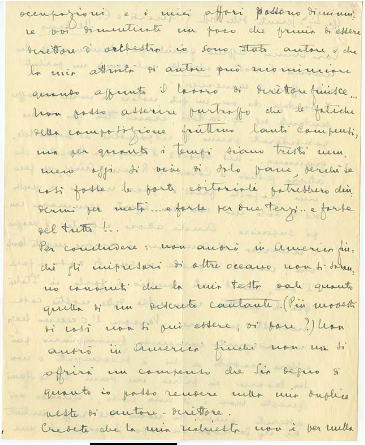 occupazioni e i miei affari possono diminui
re voi dimenticate un poco che prima di essere
direttore d'orchestra io sono stato autore, che
la mia attività di autore può ricominciare
quando appunto il lavoro di direttore finisce...
Non posso asserire purtroppo che le fatiche
della composizione fruttino tanti compensi,
ma per quanto i tempi siano tristi nem
meno oggi si vive di solo pane, perchè se
così fosse le porte editoriali potrebbero chiu
dermi per metà... e forse per due terzi... e forse
del tutto!...
Per concludere: non andrò in America fin
chè gli impresari di oltre oceano non si saran
no convinti che la mia testa vale quanto
quella di un discreto cantante. (Più modesti
di così non si può essere, vi pare?) Non
andrò in America finchè non mi si
offrirà un compenso che sia degno di
quanto io posso rendere nella mia duplice
veste di autore-direttore.
Credete che la mia richiesta non è per nulla